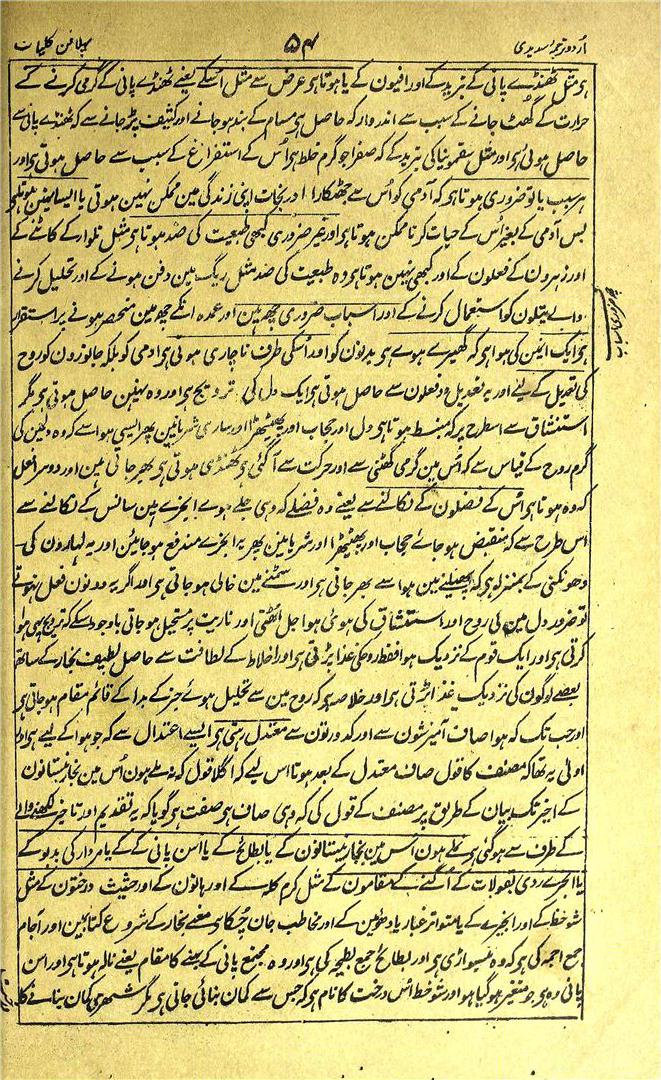 اُردو ترجمۂ سدیدی
۵۴
پہلا فن کلیات
ہی مثل ٹھنڈے پانی کے تبرید کے اور افیون کے یا ہوتا ہی عرض سے مثل اسکے یعنے ٹھنڈے پانی کے گرمی کرنے کے
حرارت کے گھٹ جانے کے سبب سے اندر وار کہ حاصل ہی مسام کے بند ہو جانے اور کثیف پڑ جانے سے کہ ٹھنڈے پانی سے
حاصل ہوئی ہی اور مثل سقمونیا کی تبرید کے کہ صفرا جو گرم خلط ہی اُس کے استفراغ کے سبب سے حاصل ہوتی ہی اور
ہر سبب یا تو ضروری ہوتا ہی کہ آدمی کو اُس سے چھٹکارا اور نجات اپنی زندگی مین ممکن نہین ہوتی یا ایسا نہین ہوتا ہی
بس آدمی کے بغیر اُس کے حیات کرنا ممکن ہوتا ہی اور غیر ضروری کبھی طبیعت کی ضد ہوتا ہی مثل تلوار کے کاٹنے کے
اور زہرون کے فعلون کے اور کبھی نہین ہوتا ہی وہ طبیعت کی ضد مثل ریگ مین دفن ہونے کے اور تحلیل کرنے
والے تیلون کو استعمال کرنے کے اور اسباب ضروری چھ ہین اور عمدہ انکے چھ مین منحصر ہونے پر استقرار
ہی ایک انین کی ہوا ہی کہ گھیرے ہوے ہی بدنون کو اور اُسکی طرف ناچاری ہوتی ہی آدمی کو بلکہ جانورون کو روح
کی تعدیل کے لیے اور یہ تعدیل دو فعلون سے حاصل ہوتی ہی ایک دل کی ترویح ہی اور وہ نہین حاصل ہوتی ہی مگر
استنشاق سے اسطرح پر کہ منبسط ہوتا ہی دل اور حجاب اور پھیپھڑا اور ساری شریانین پھر ایسی ہوا سے کہ وہ یقین کی
گرم روح کے قیاس سے کہ اُس مین گرمی گھٹنی سے اور حرکت سے آگئی ہی ٹھنڈی ہوتی ہی پھر جاتی ہین اور دوسرا فعل
کہ وہ ہوتا ہی اُس کے فضلون کے نکالنے سے یعنے وہ فضلے کہ وہی جلے ہوے ابخرے ہین سانس کے نکالنے سے
اس طرح سے کہ منقبض ہو جائے حجاب اور پھیپھڑا اور شریانین پھر یہ ابخرے مندفع ہو جائین اور یہ لہارون کی
دھونکنی کے بمنزلہ ہی کہ پھیلنے مین ہوا سے بھر جاتی ہی اور سمٹنے مین خالی ہو جاتی ہی اور اگر یہ دونون فعل نہوتے
تو ضرور دل مین کی روح اور استنشاق کی ہوئی ہوا جل اُٹھتی اور ناریت پر مستحیل ہو جاتی باوجود اسکے کہ ترویح بھی ہوا
کرتی ہی اور ایک قوم کے نزدیک ہوا فقط روح کی غذا پڑتی ہی اور اخلاط کے لطافت سے حاصل لطیف بخار کے ساتھ
بعضے لوگون کی نزدیک غذا پڑتی ہی اور خلاصہ یہ کہ روح مین سے تحلیل ہوئے جز کے بدل کے قائم مقام ہو جاتی ہی
اور جب تک کہ ہوا صاف آمیزشون سے اور کدورتون سے معتدل رہتی ہی ایسے اعتدال سے کہ جو ہوا کے لیے ہی اور
اولی یہ تھا کہ مصنف کا قول صاف معتدل کے بعد ہوتا اس لیے کہ اگلا قول کہ نہ ملے ہون اُس مین بخار نیستانون
کے اخیر تک بیان کے طریق پر مصنف کے قول کی کہ وہی صاف ہی صفت ہی گویا کہ یہ تقدیم اور تاخیر لکھنے والے
کے طرف سے ہو گئی ہی نہ ملے ہون اُس مین بخار نیستانون کے یا بطائح کے یا اُس پانی کے کے یا مردار کی بدبو کے
یا ابخرے ردی بقولات کے اُگنے کے مقامون کے مثل کرم کلہ کے اور ہالون کے اور خبیث درختون کے مثل
شوحط کے اور ابخیرے کے یا متواتر غبار یا دھوین کے اور مخاطب جان چکا ہی معنے بخار کے شروع کتاب مین اور آجام
جمع اجمہ کی ہی کہ وہ نیسواڑی ہی اور بطائح جمع بطیحہ کی ہی اور وہ مجتمع پانی کے بہنے کا مقام یعنے نالہ ہوتا ہی اور اسن
پانی وہ ہی جو متغیر ہو گیا ہو اور شوحط اُس درخت کا نام ہی کہ جس سے کمان بنائی جاتی ہی مگر شہرہ ہی کمان بنانے کا